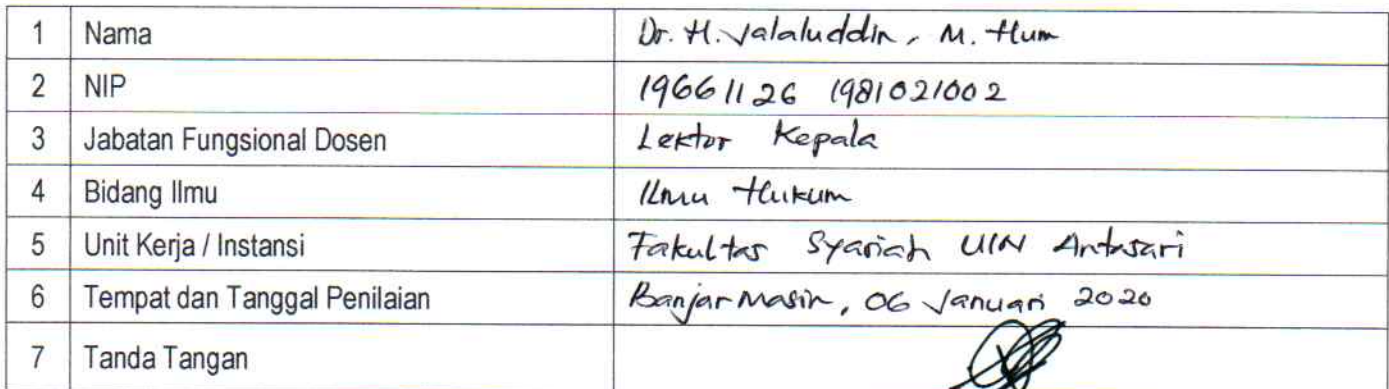 1 Nama Dr. H. Jalaluddin, M. Hum
2 NIP 19661126 1981021002
3 Jabatan Fungsional Dosen Lektor Kepala
4 Bidang Ilmu Ilmu Hukum
5 Unit Kerja / Instansi Fakultas Syariah UIN Antasari
6 Tempat dan Tanggal Penilaian Banjarmasin, 06 Januari 2020
7 Tanda Tangan